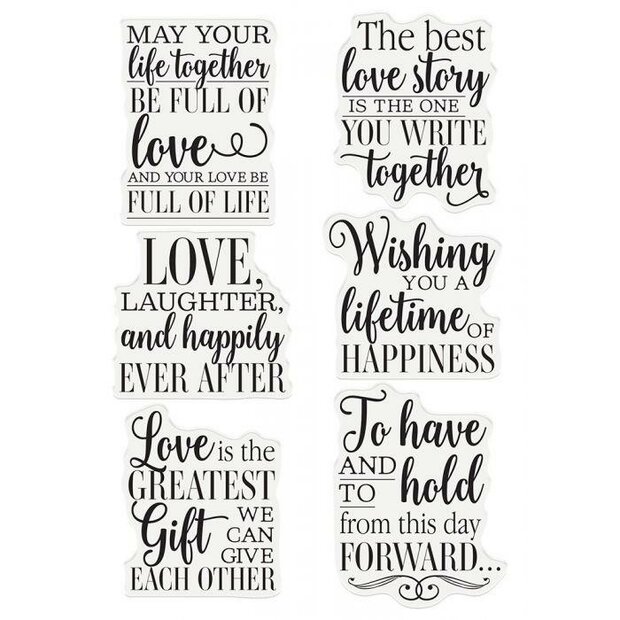 MAY YOUR
life together
BE FULL OF
love
AND YOUR LOVE BE
FULL OF LIFE
The best
love story
IS THE ONE
YOU WRITE
together
LOVE,
LAUGHTER,
and happily
EVER AFTER
Wishing
YOU A
lifetime OF
HAPPINESS
Love is the
GREATEST
Gift WE
CAN
GIVE
EACH OTHER
To have
AND
TO hold
from this day
FORWARD...